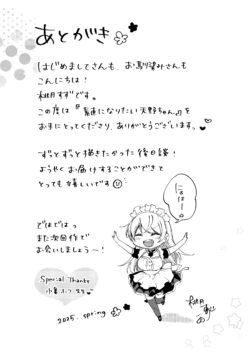 あとがき
はじめましてさんも、お馴染みさんも
こんにちは!
桃月すずです。
この度は『
になりたい天野ちゃん』を
お手にとってくださり、ありがとうございます。
ずっとずっと描きたかった後日談!
ようやくお届けすることができて
とっても嬉しいです
にぱー!
ではではっ
また次回作で
お会いしましょう〜!
Special Thanks
桃月
すず
2025. spring